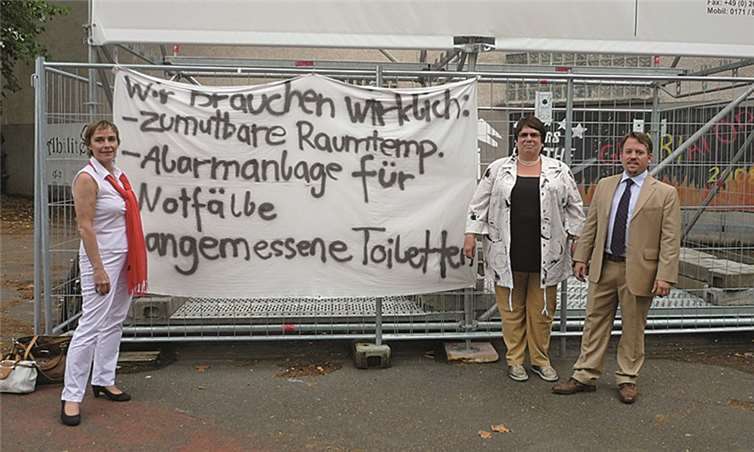 Fax: +49 (0) 2
Mobil: 0171 / 8
Wir brauchen wirklich:
-zumutbare Raumtemp.
-Alarmanlage für
Notfälle
angemessene Toiletten
Abili